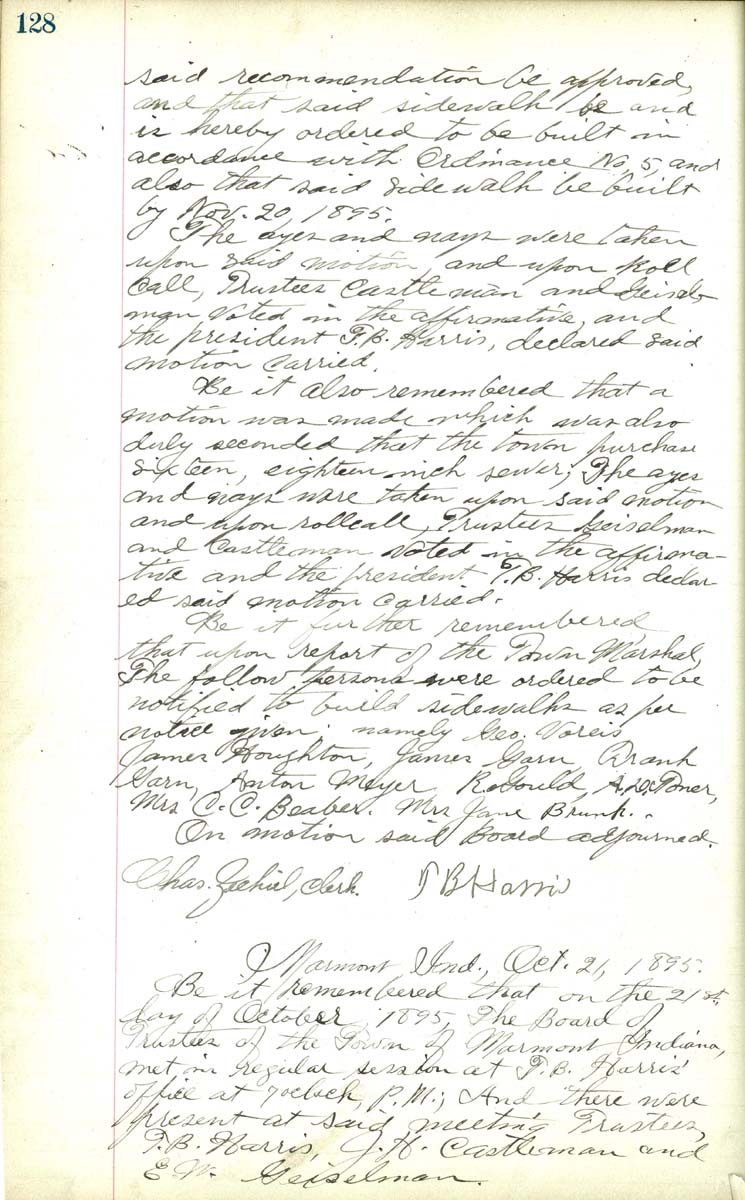 128
said recommendation be approved,
and that said sidewalk be and
is hereby ordered to be built in
accordance with Ordinance No, 5, and
also that said sidewalk be built
by Nov. 20, 1895.
The ayes and nays were taken
upon said motion, and upon Roll
Call, Trustees Castleman and Geisel-
man voted in the affirmative, and
the president T.B. Harris, declared said
motion carried.
Be it also remembered that a
motion was made which was also
duly seconded that the town purchase
sixteen, eighteen inch sewer; The ayes
and nays were taken upon said motion
and upon rollcall, Trustees Geiselman
and Castleman voted in the affirma-
tive and the president T.B. Harris declar-
ed said motion carried.
Be it further remembered
that upon report of the Town Marshal,
The follow persons were ordered to be
notified to build sidewalks as per
notice given; namely Geo. Voreis
James Houghton, James Garn, Frank
Garn, Anton Meyer, R. Gould, Toner,
Mrs C. C. Beaber. Mrs Jane Brunk.
On motion said Board adjourned.
Chas. Zechiel, Clerk. T B Harris
Marmont Ind., Oct. 21, 1895.
Be it remembered that on the 21st,
day of October 1895, The Board of
Trustees of the Town of Marmont Indiana,
met in regular session at T.B. Harris'
office at 7 oclock, P.M.; And there were
present at said meeting Trustees,
T.B. Harris, J.H. Castleman and
E W. Geiselman.